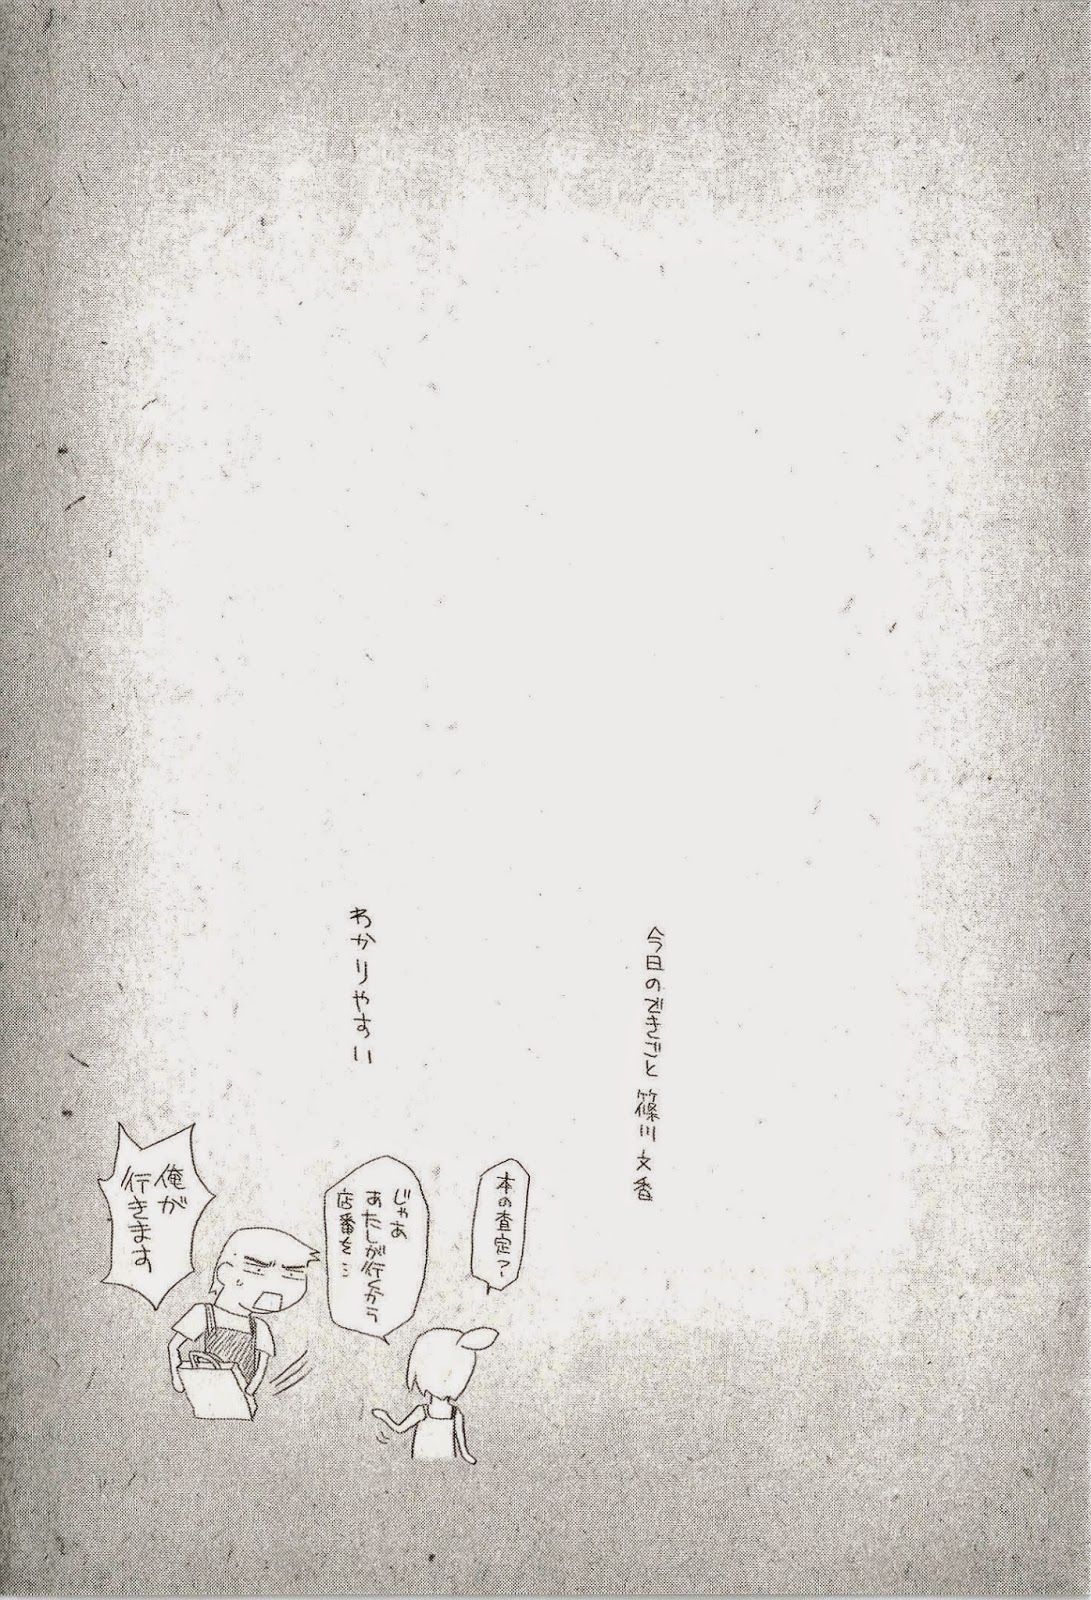 今日のできごと 篠川 文香
わかりやすい
本の査定？
じゃあ
あたしが行くから
店番を…
俺が
行きます